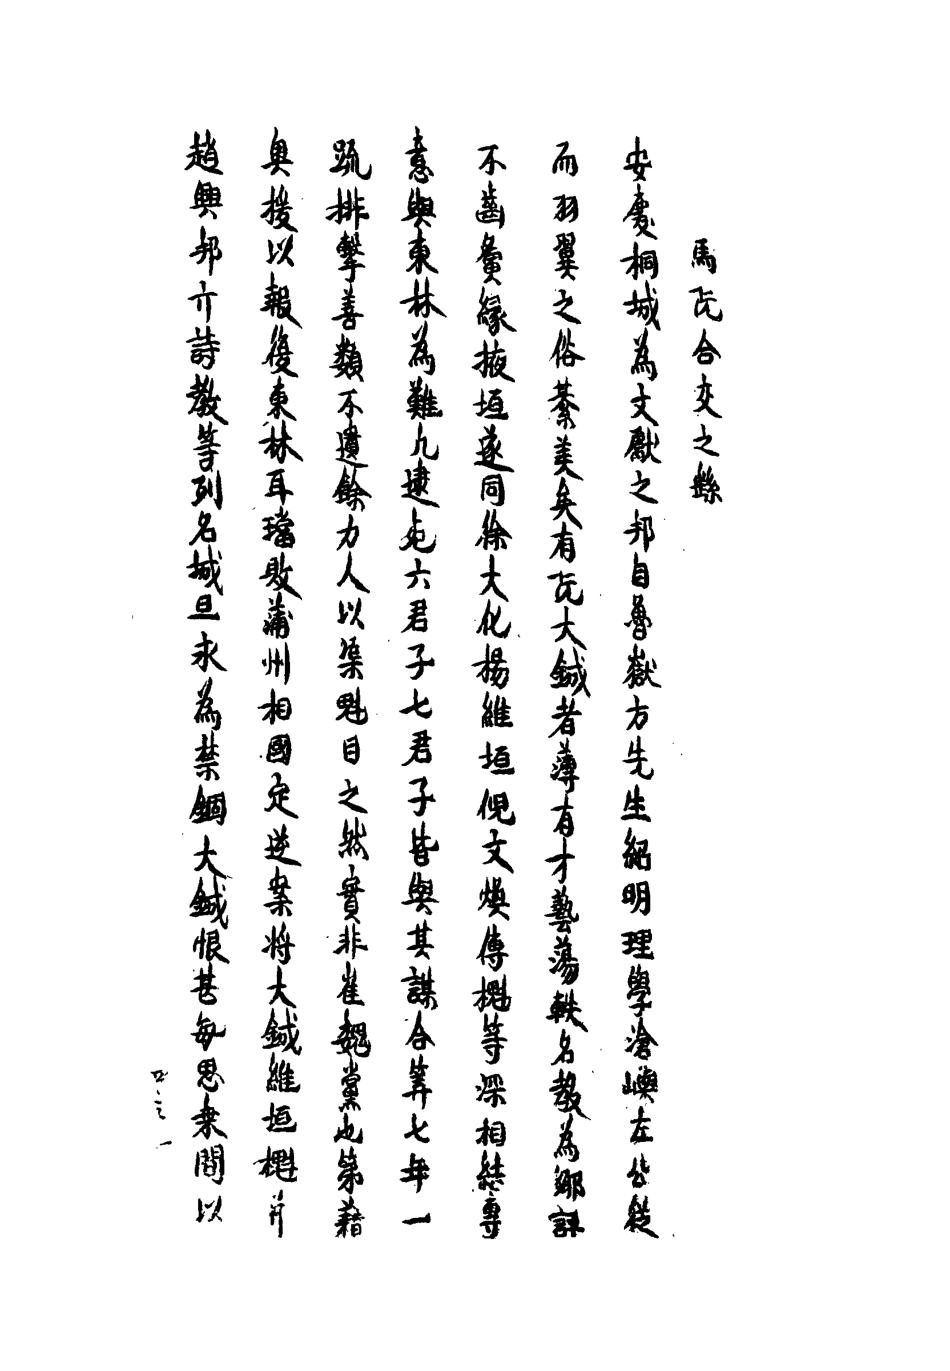 馬阮合交之繇
安慶桐城為文獻之邦自魯嶽方先生紹明理學滄嶼左公從
而羽翼之俗綦美矣有阮大鋮者薄有才藝蕩軼名教為鄉評
不齒夤緣掖垣遂同徐大化楊維垣倪文煥傅櫆等深相結專
意與東林為難凡逮死六君子七君子皆與其謀合筭七年一
疏排擊善類不遺餘力人以渠魁目之然實非崔魏黨也第藉
奧援以報復東林耳璫敗蒲州相國定逆案將大鋮維垣櫆并
趙興邦亓詩教等列名城旦永為禁錮大鋮恨甚每思乘間以